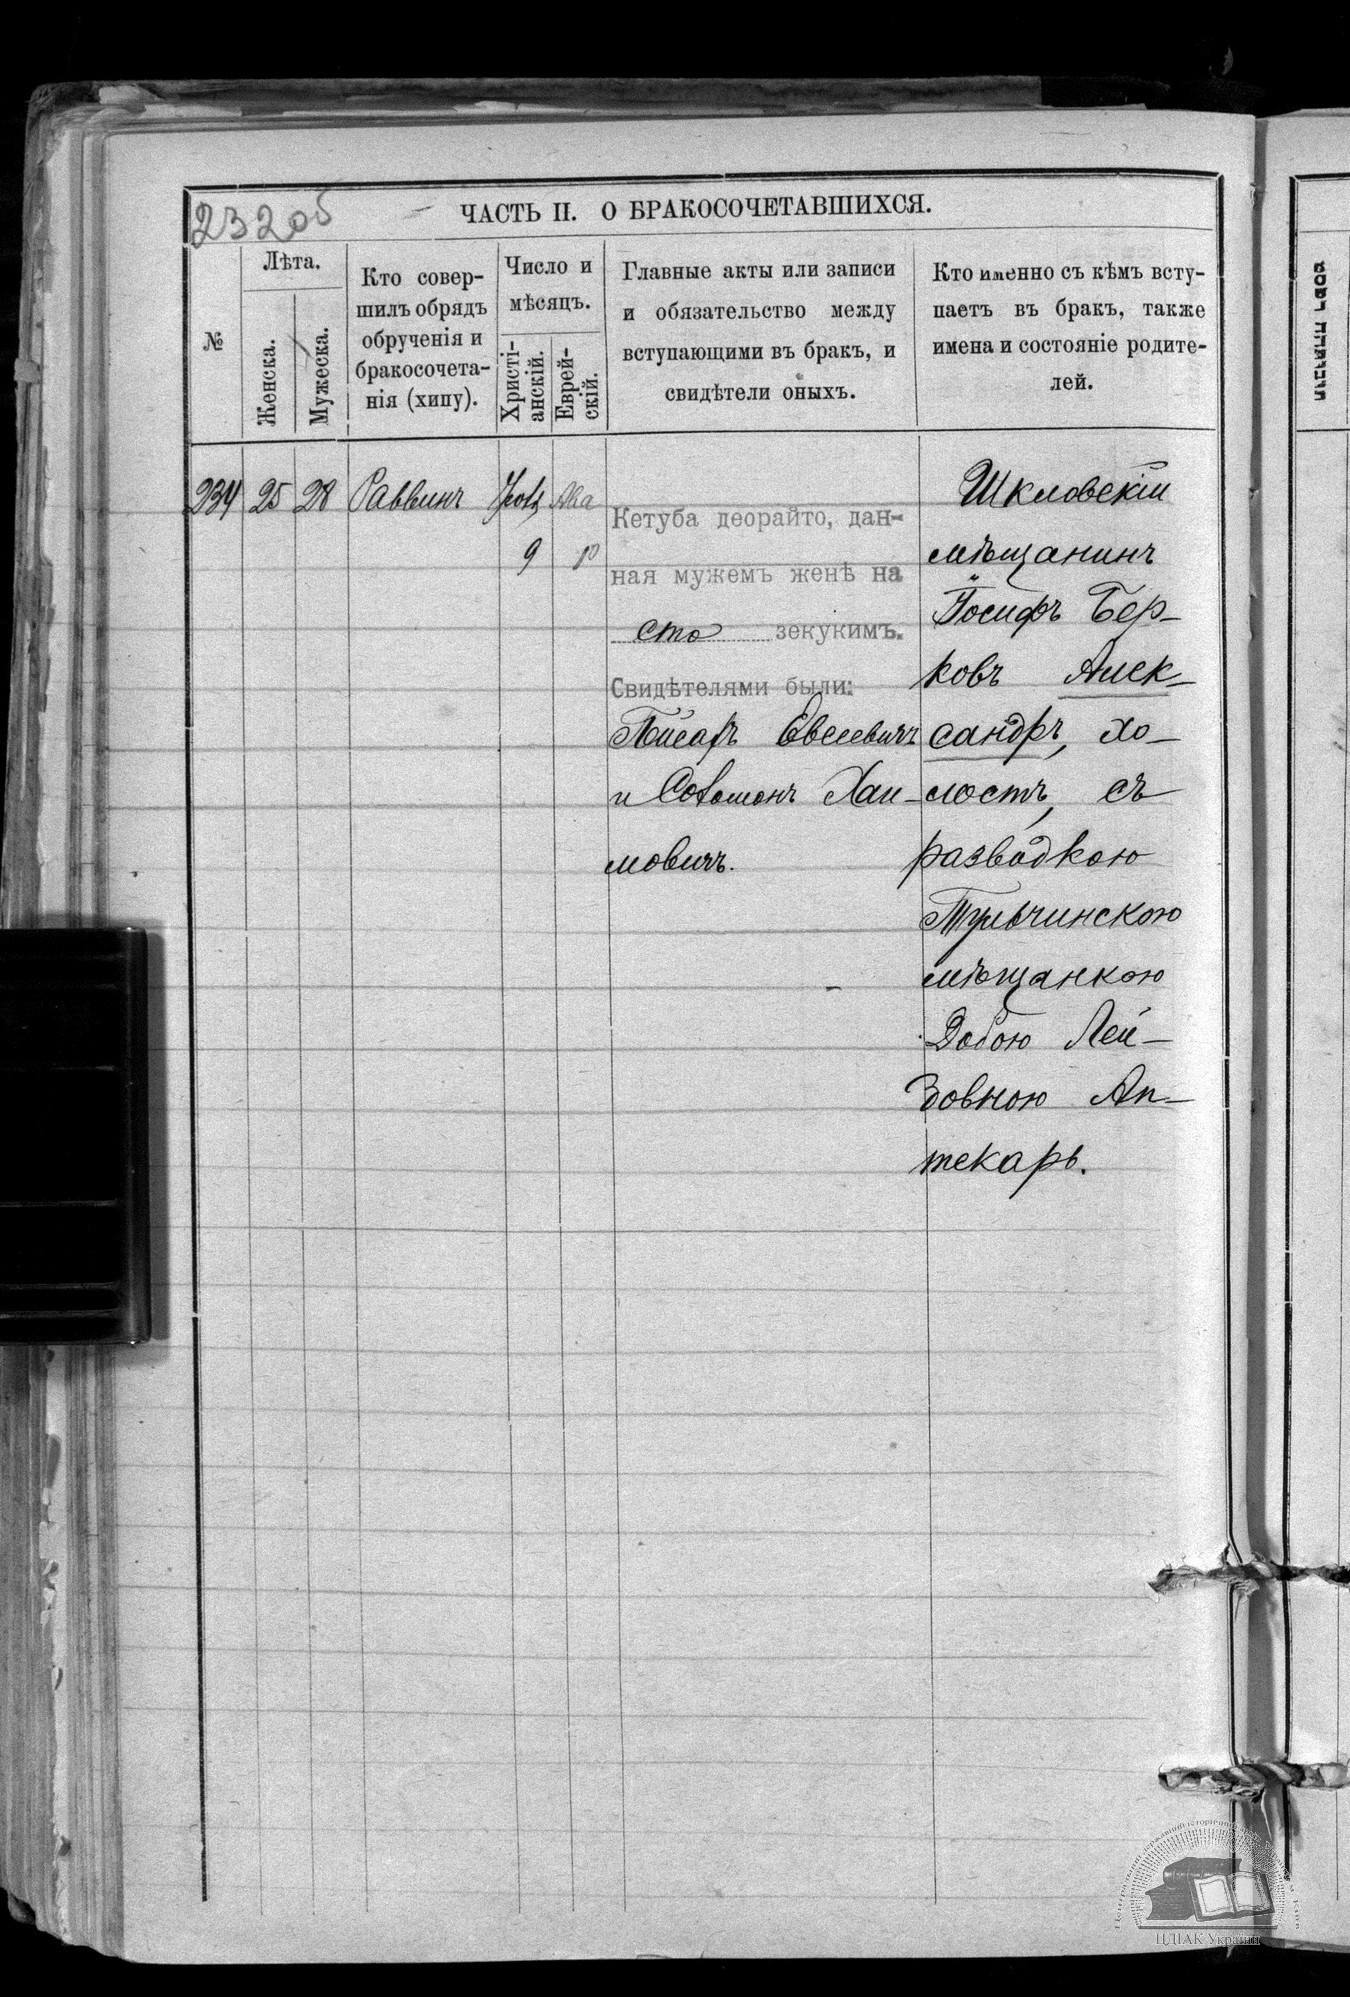 232об
ЧАСТЬ II. О БРАКОСОЧЕТАВШИХСЯ.
№
Лѣта.
Женска.
Мужеска.
Кто совер-
шилъ обрядъ
обрученія и
бракосочета-
нія (хипу).
Число и
мѣсяцъ.
Христі-
анскій.
Еврей-
скій.
Главные акты или записи
и обязательство между
вступающими въ бракъ, и
свидѣтели оныхъ.
Кто именно съ кѣмъ всту-
паетъ въ бракъ, также
имена и состояніе родите-
лей.
234 25 28 Раввинъ
9
Кетуба деорайто, дан-
ная мужемъ женѣ на
сто зекукимъ.
Свидѣтелями были:
Евсевичъ
и Соломонъ Хаи-
мовичъ.
Шкловскій
мѣщанинъ
Іосифъ Бер-
ковъ Алек-
сандръ, хо-
лостъ, съ
разводкою
Тульчинскою
мѣщанкою
Добою Лей-
зовною Ап-
текарь.
ЦДІАК України